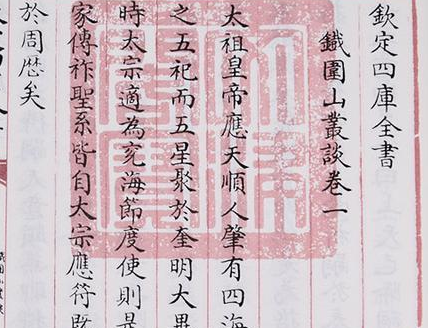 欽定四庫全書
鐵圍山叢談卷一
太祖皇帝應天順人肇有四海
之五祀而五星聚於奎明大異
時太宗適為兖海節度使則是
家傳祚聖系皆自太宗應符既
於周厯矣